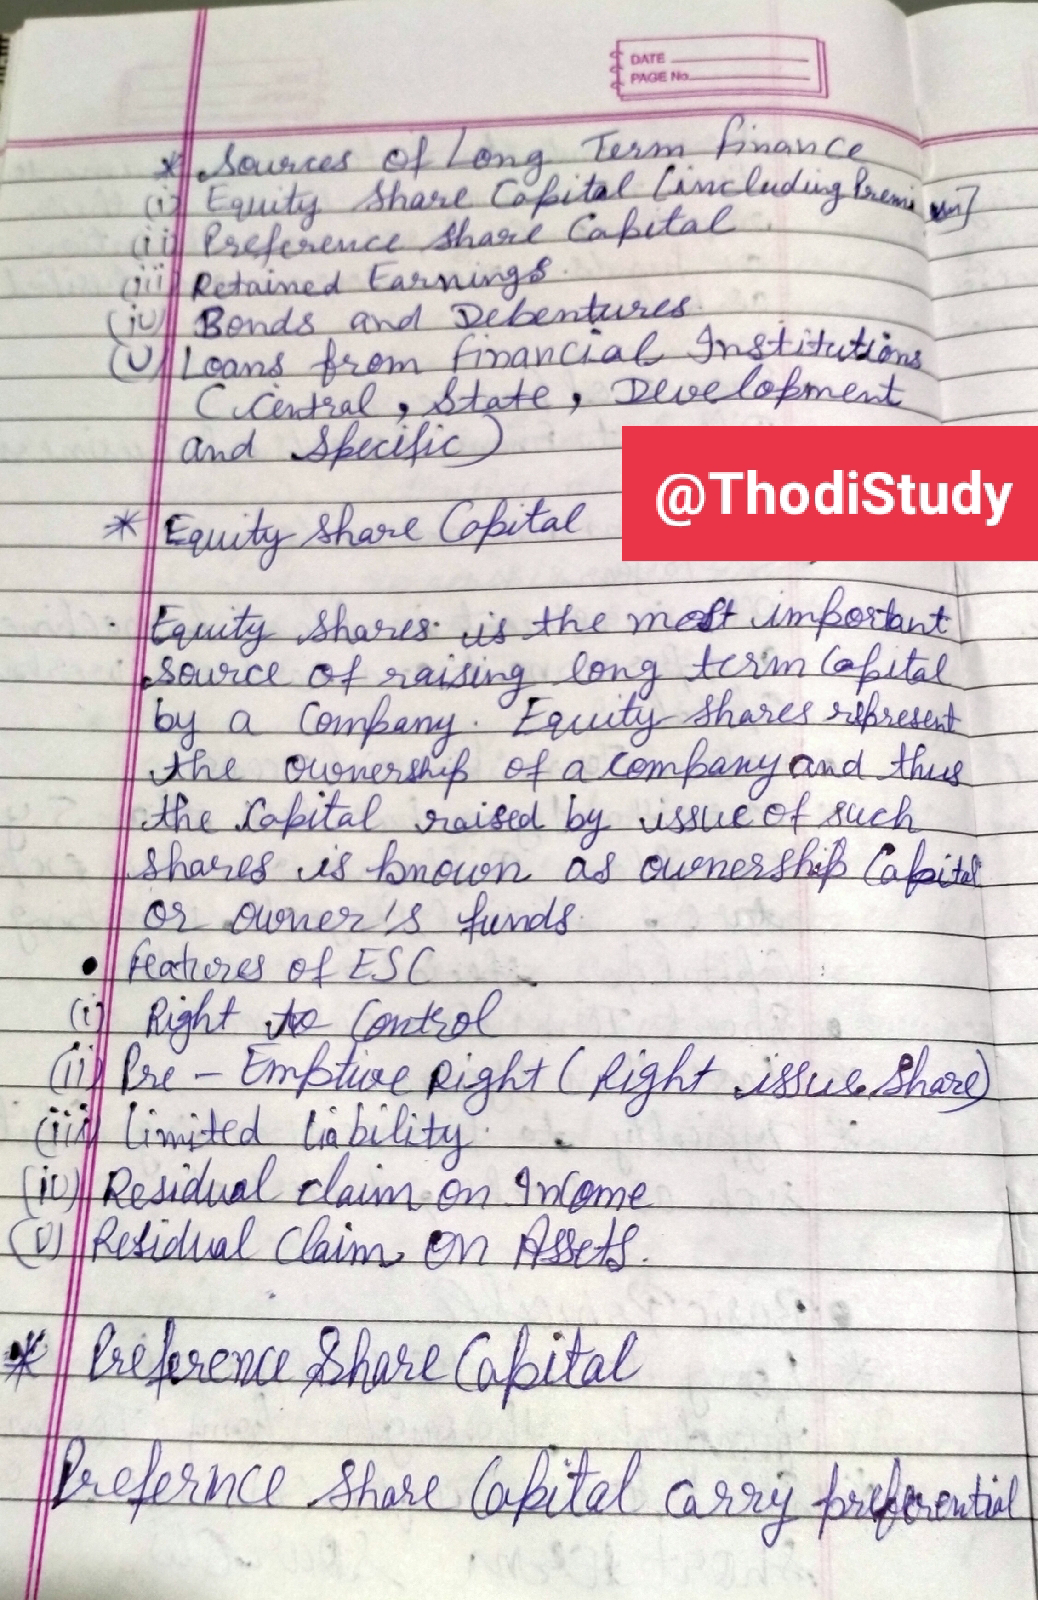 DATE
PAGE No.
* Sources of Long Term finance
(i) Equity Share Capital [including Premium]
(ii) Preference Share Capital
(iii) Retained Earnings.
(iv) Bonds and Debentures.
(v) Loans from financial Institutions
(Central, State, Development
and Specific)
@ThodiStudy
* Equity Share Capital
Equity shares is the most important
source of raising long term Capital
by a Company. Equity shares represent
the ownership of a company and thus
the Capital raised by issue of such
shares is known as ownership Capital
or owner's funds.
• features of ESC
(i) Right to Control
(ii) Pre-Emptive Right (Right issue Share)
(iii) Limited liability.
(iv) Residual claim on Income
(v) Residual Claim on Assets.
* Preference Share Capital
Prefernce Share Capital carry preferential